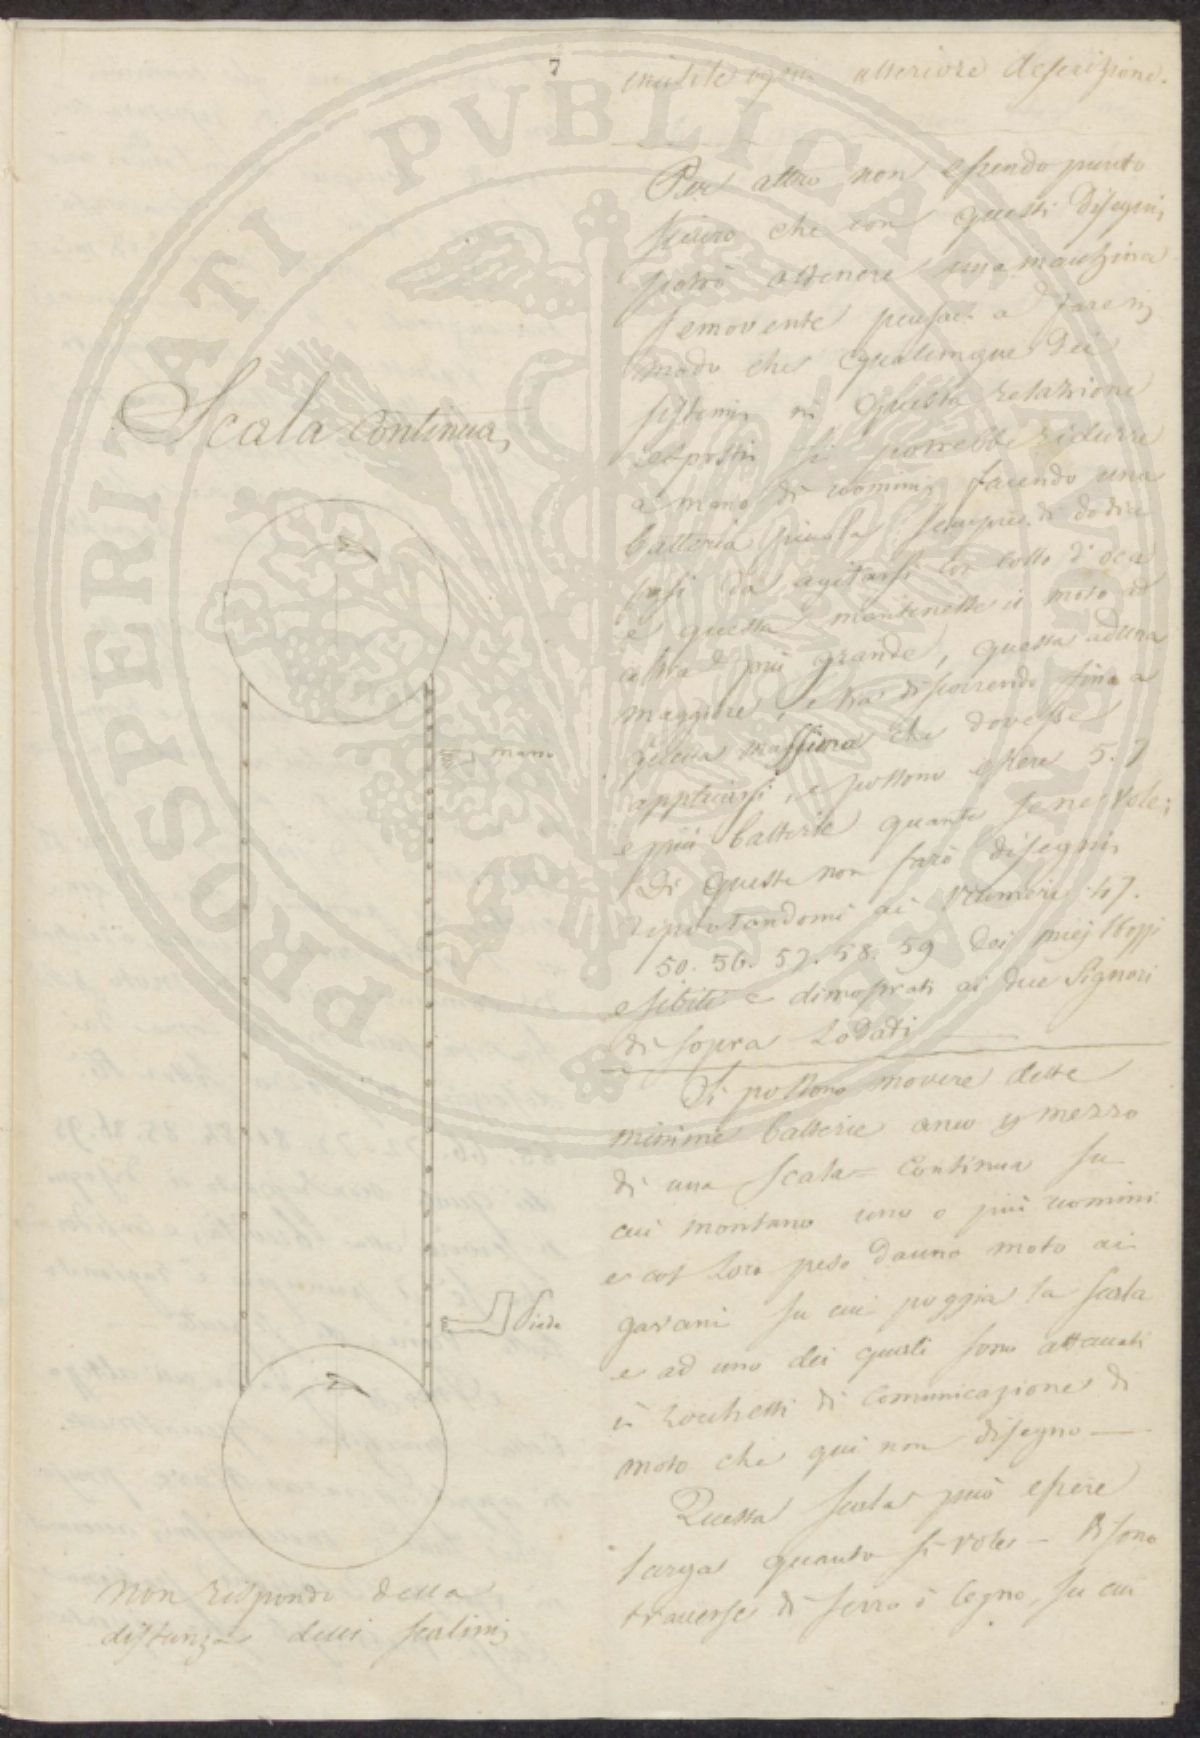 7
inutile ogni ulteriore descrizione.
Per altro non essendo punto
sicuro che con questi disegni,
potrò ottenere una macchina
semovente pensai a fare in
modo che qualunque dei
sistemi in questa relazione
esposti si potrebbe ridurre
a mano di uomini, facendo una
batteria piccola sempre di dodici
da agitarsi con collo d'oca
e questa mantenesse il moto ad
altra più grande, questa ad una
maggiore, e via discorrendo fino a
quella massima che dovesse
applicarsi, e possono essere 5. 7
e più batterie quante se ne vole;
Di queste non farò disegni,
riportandomi ai numeri 47.
50. 56. 57. 58. 59 dei miej
esibiti e dimostrati ai due Signori
di sopra Lodati
Si possono movere dette
minime batterie anco p mezzo
di una Scala = Continua su
cui montano uno o più uomini
e col loro peso danno moto ai
su cui poggia la scala
e ad uno dei quali sono attaccati
i rocchetti di comunicazione di
moto che qui non disegno —
Questa scala può essere
larga quanto si vole — Vi sono
traverse di ferro o legno, su cui
Scala Continua,
mano
Piede
Non rispondo della
distanza delli scalini
PROSPERITATI PVBLICAE